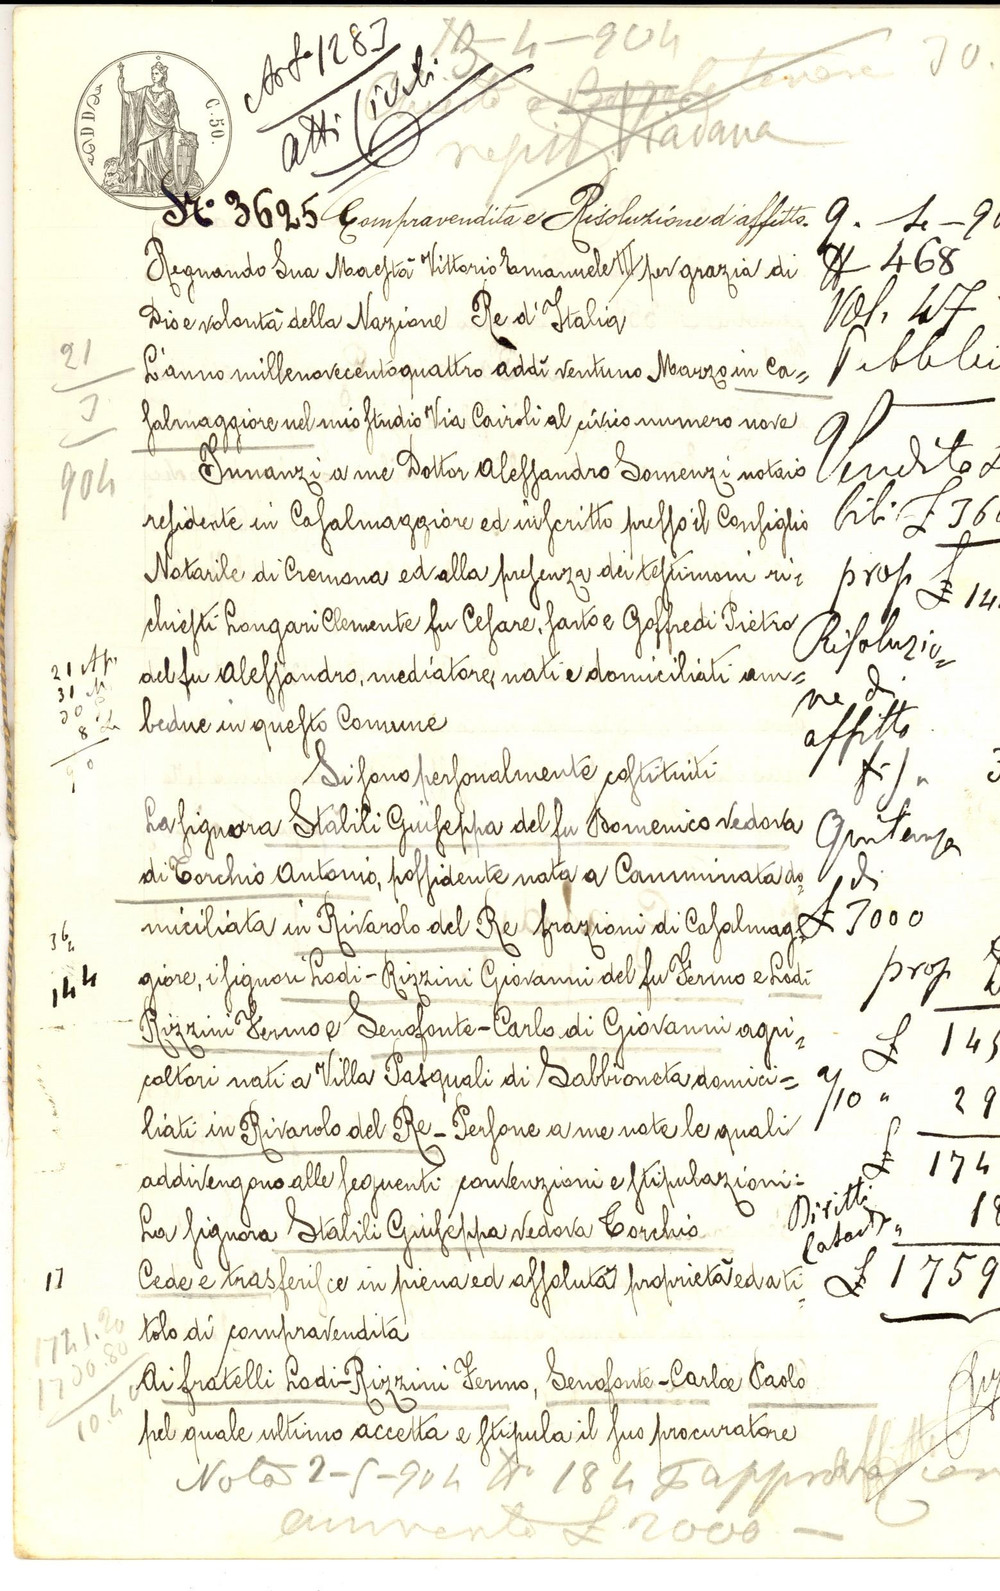 Art° 1283
atti Civili
C. 50.
N.° 3625 Compravendita e Risoluzione d'affitto.
Regnando Sua Maestà Vittorio Emanuele III per grazia di
Dio e volontà della Nazione Re d'Italia
L'anno millenovecentoquattro addì ventuno Marzo in Ca=
salmaggiore nel mio studio Via Cairoli al civico numero nove
Innanzi a me Dottor Alessandro Somenzi notaio
residente in Casalmaggiore ed inscritto presso il Consiglio
Notarile di Cremona ed alla presenza dei testimoni ri=
chiesti Longari Clemente fu Cesare, sarto e Goffredi Pietro
del fu Alessandro, mediatore, nati e domiciliati am=
bedue in questo Comune
Si sono personalmente costituiti
La signora Stabili Giuseppa del fu Domenico vedova
di Torchio Antonio, possidente nata a Camminata do=
miciliata in Rivarolo del Re frazioni di Casalmag=
giore, i signori Lodi-Rizzini Giovanni del fu Fermo e Lodi
Rizzini Fermo e Senofonte-Carlo di Giovanni agri=
coltori nati a Villa Pasquali di Sabbioneta domici=
liati in Rivarolo del Re - Persone a me note le quali
addivengono alle seguenti convenzioni e stipulazioni=
La signora Stabili Giuseppa vedova Torchio
Cede e trasferisce in piena ed assoluta proprietà ed a ti=
tolo di compravendita
Ai fratelli Lodi-Rizzini Fermo, Senofonte-Carlo e Paolo
pel quale ultimo accetta e stipula il suo procuratore
21
3
904
144
17
# 468
Vol. 47
Pubblici
Vendita
prop £
Risoluzio=
ne di
affitto
Quitanza
di
£ 3000
prop
£ 145
9/10 " 29
£ 174
Diritti
Catast. " 18
£ 1759
Nota 2-5-904 N° 184
aumento £ 2000 —